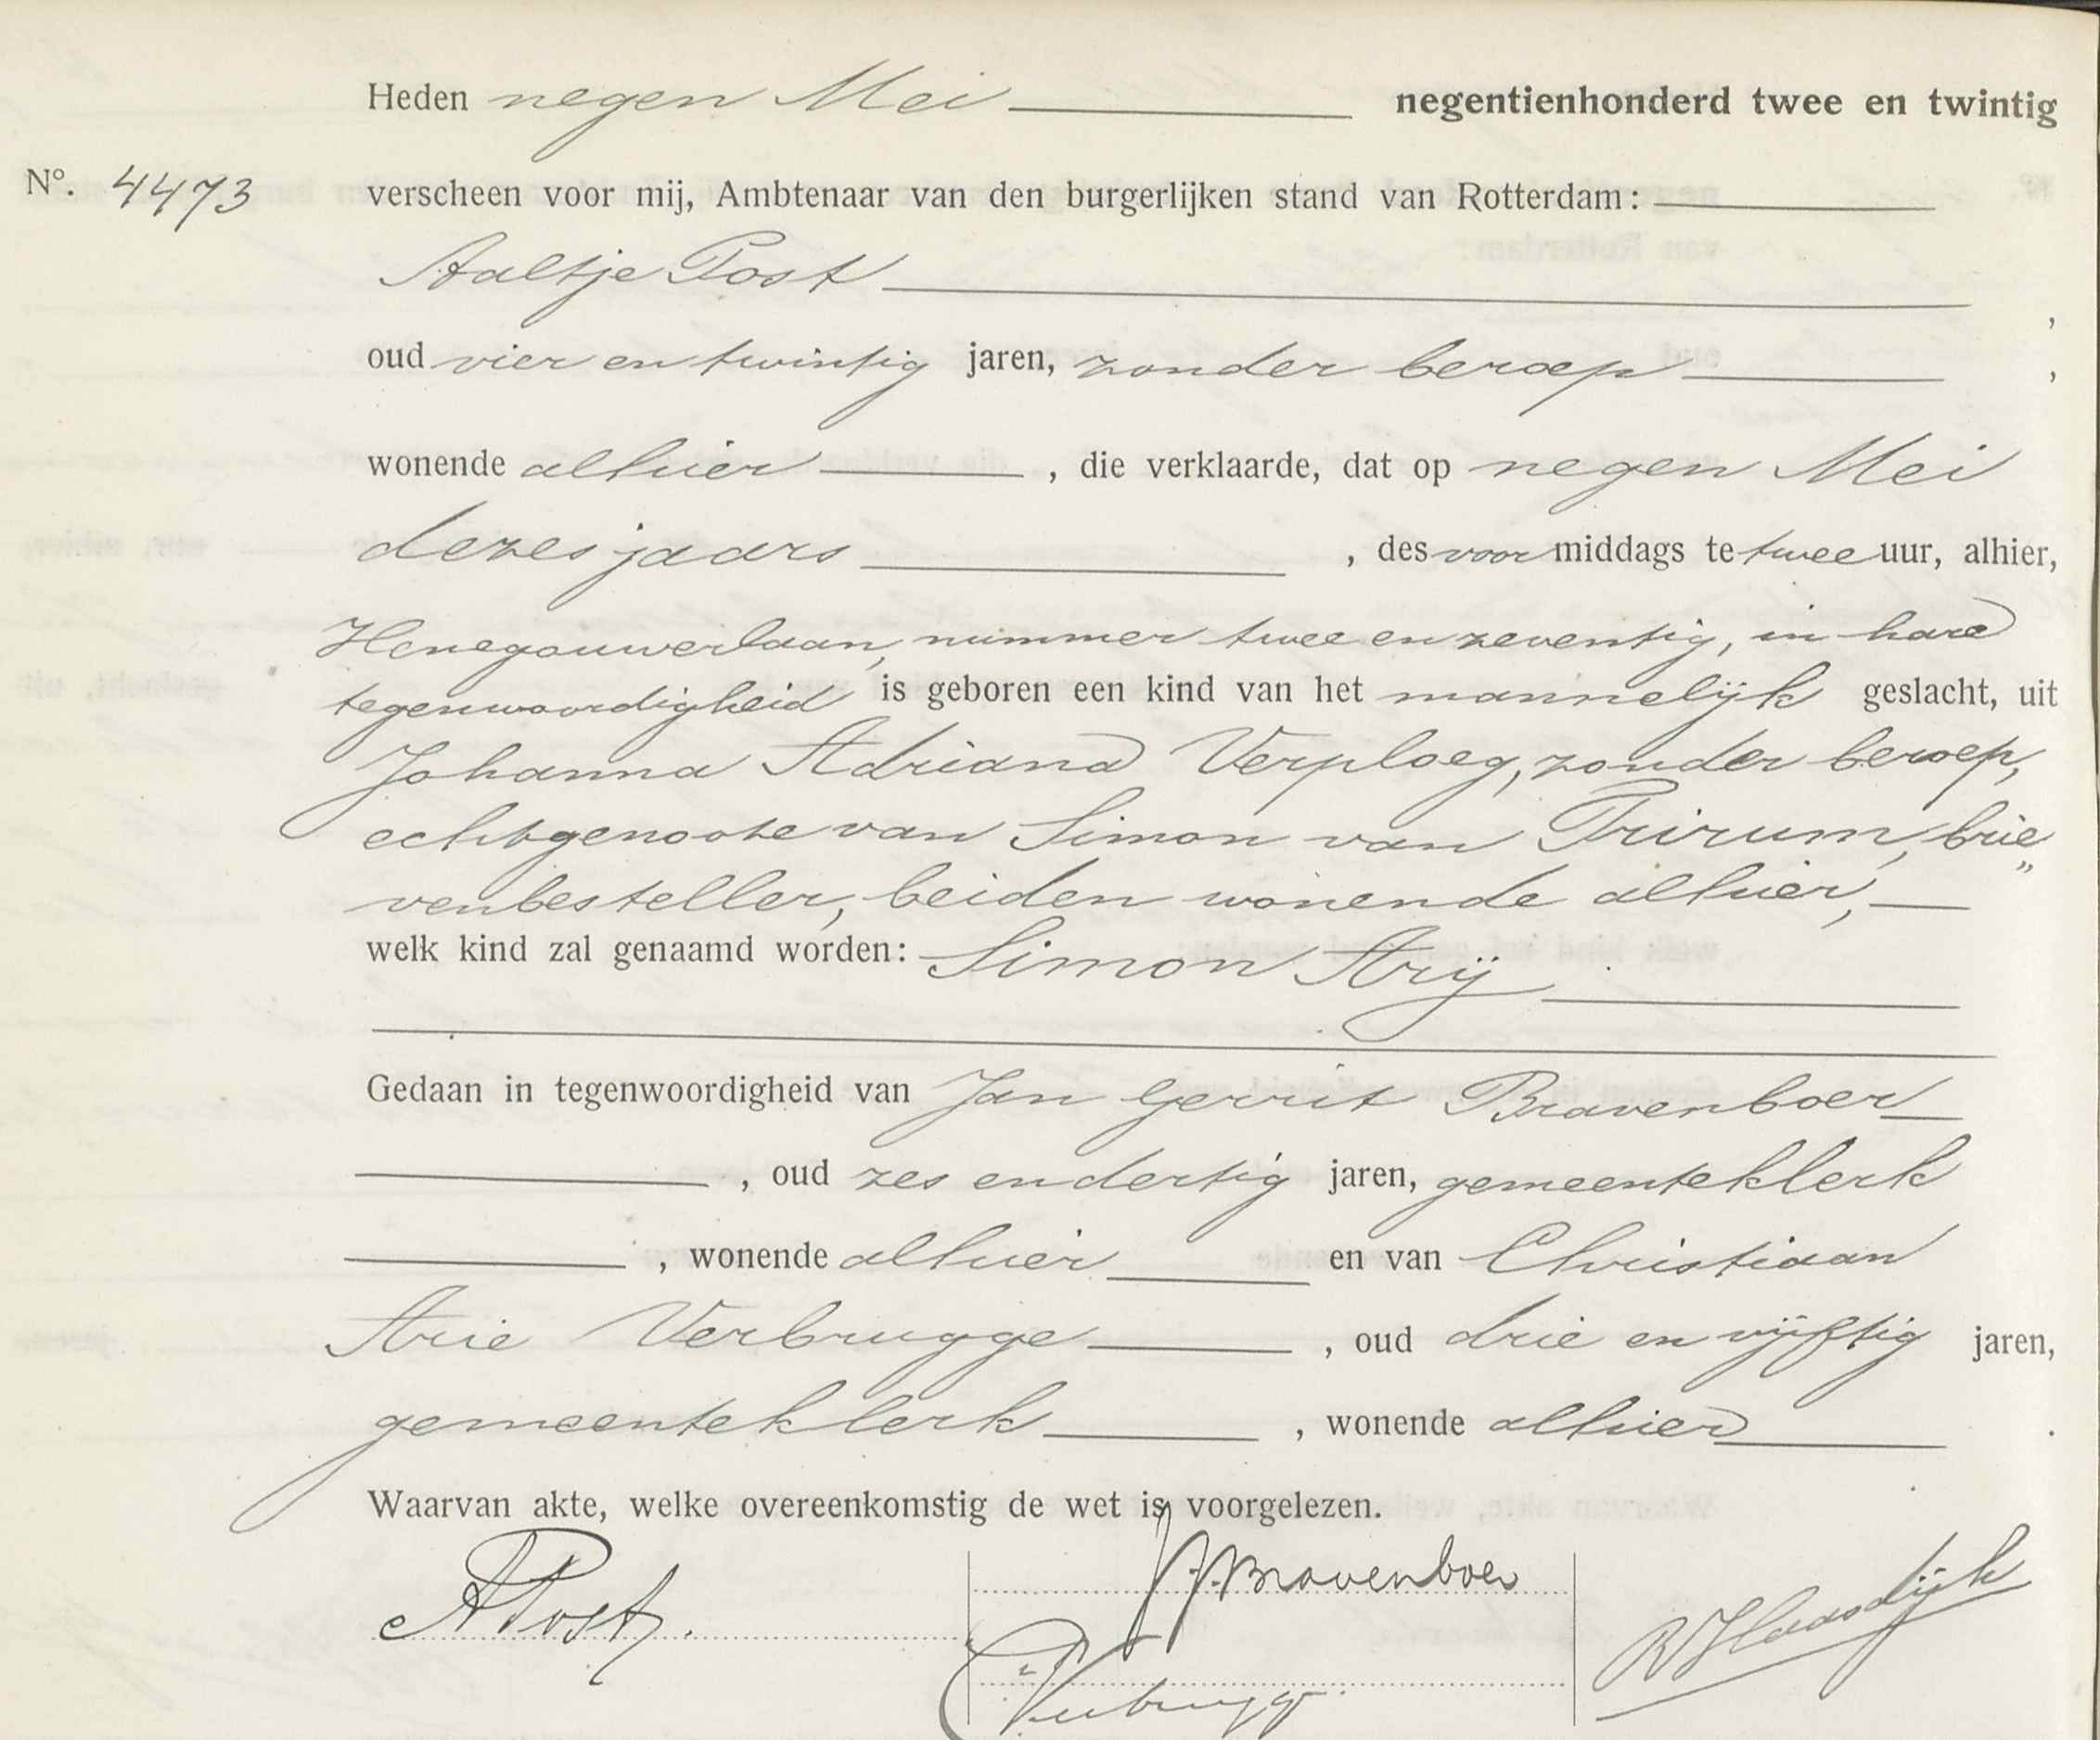 Heden negen Mei negentienhonderd twee en twintig
N°. 4473 verscheen voor mij, Ambtenaar van den burgerlijken stand van Rotterdam:
Aaltje Post ,
oud vier en twintig jaren, zonder beroep ,
wonende alhier , die verklaarde, dat op negen Mei
dezes jaars , des voor middags te twee uur, alhier,
Henegouwerlaan, nummer twee en zeventig, in hare
tegenwoordigheid is geboren een kind van het mannelijk geslacht, uit
Johanna Adriana Verploeg, zonder beroep,
echtgenoote van Simon van Trirum, brie„
venbesteller, beiden wonende alhier,
welk kind zal genaamd worden: Simon Arij
Gedaan in tegenwoordigheid van Jan Gerrit Bravenboer
, oud zes en dertig jaren, gemeenteklerk
, wonende alhier en van Christiaan
Arie Verbrugge , oud drie en vijftig jaren,
gemeenteklerk , wonende alhier .
Waarvan akte, welke overeenkomstig de wet is voorgelezen.
A Post. JGBravenboer
Verbrugge